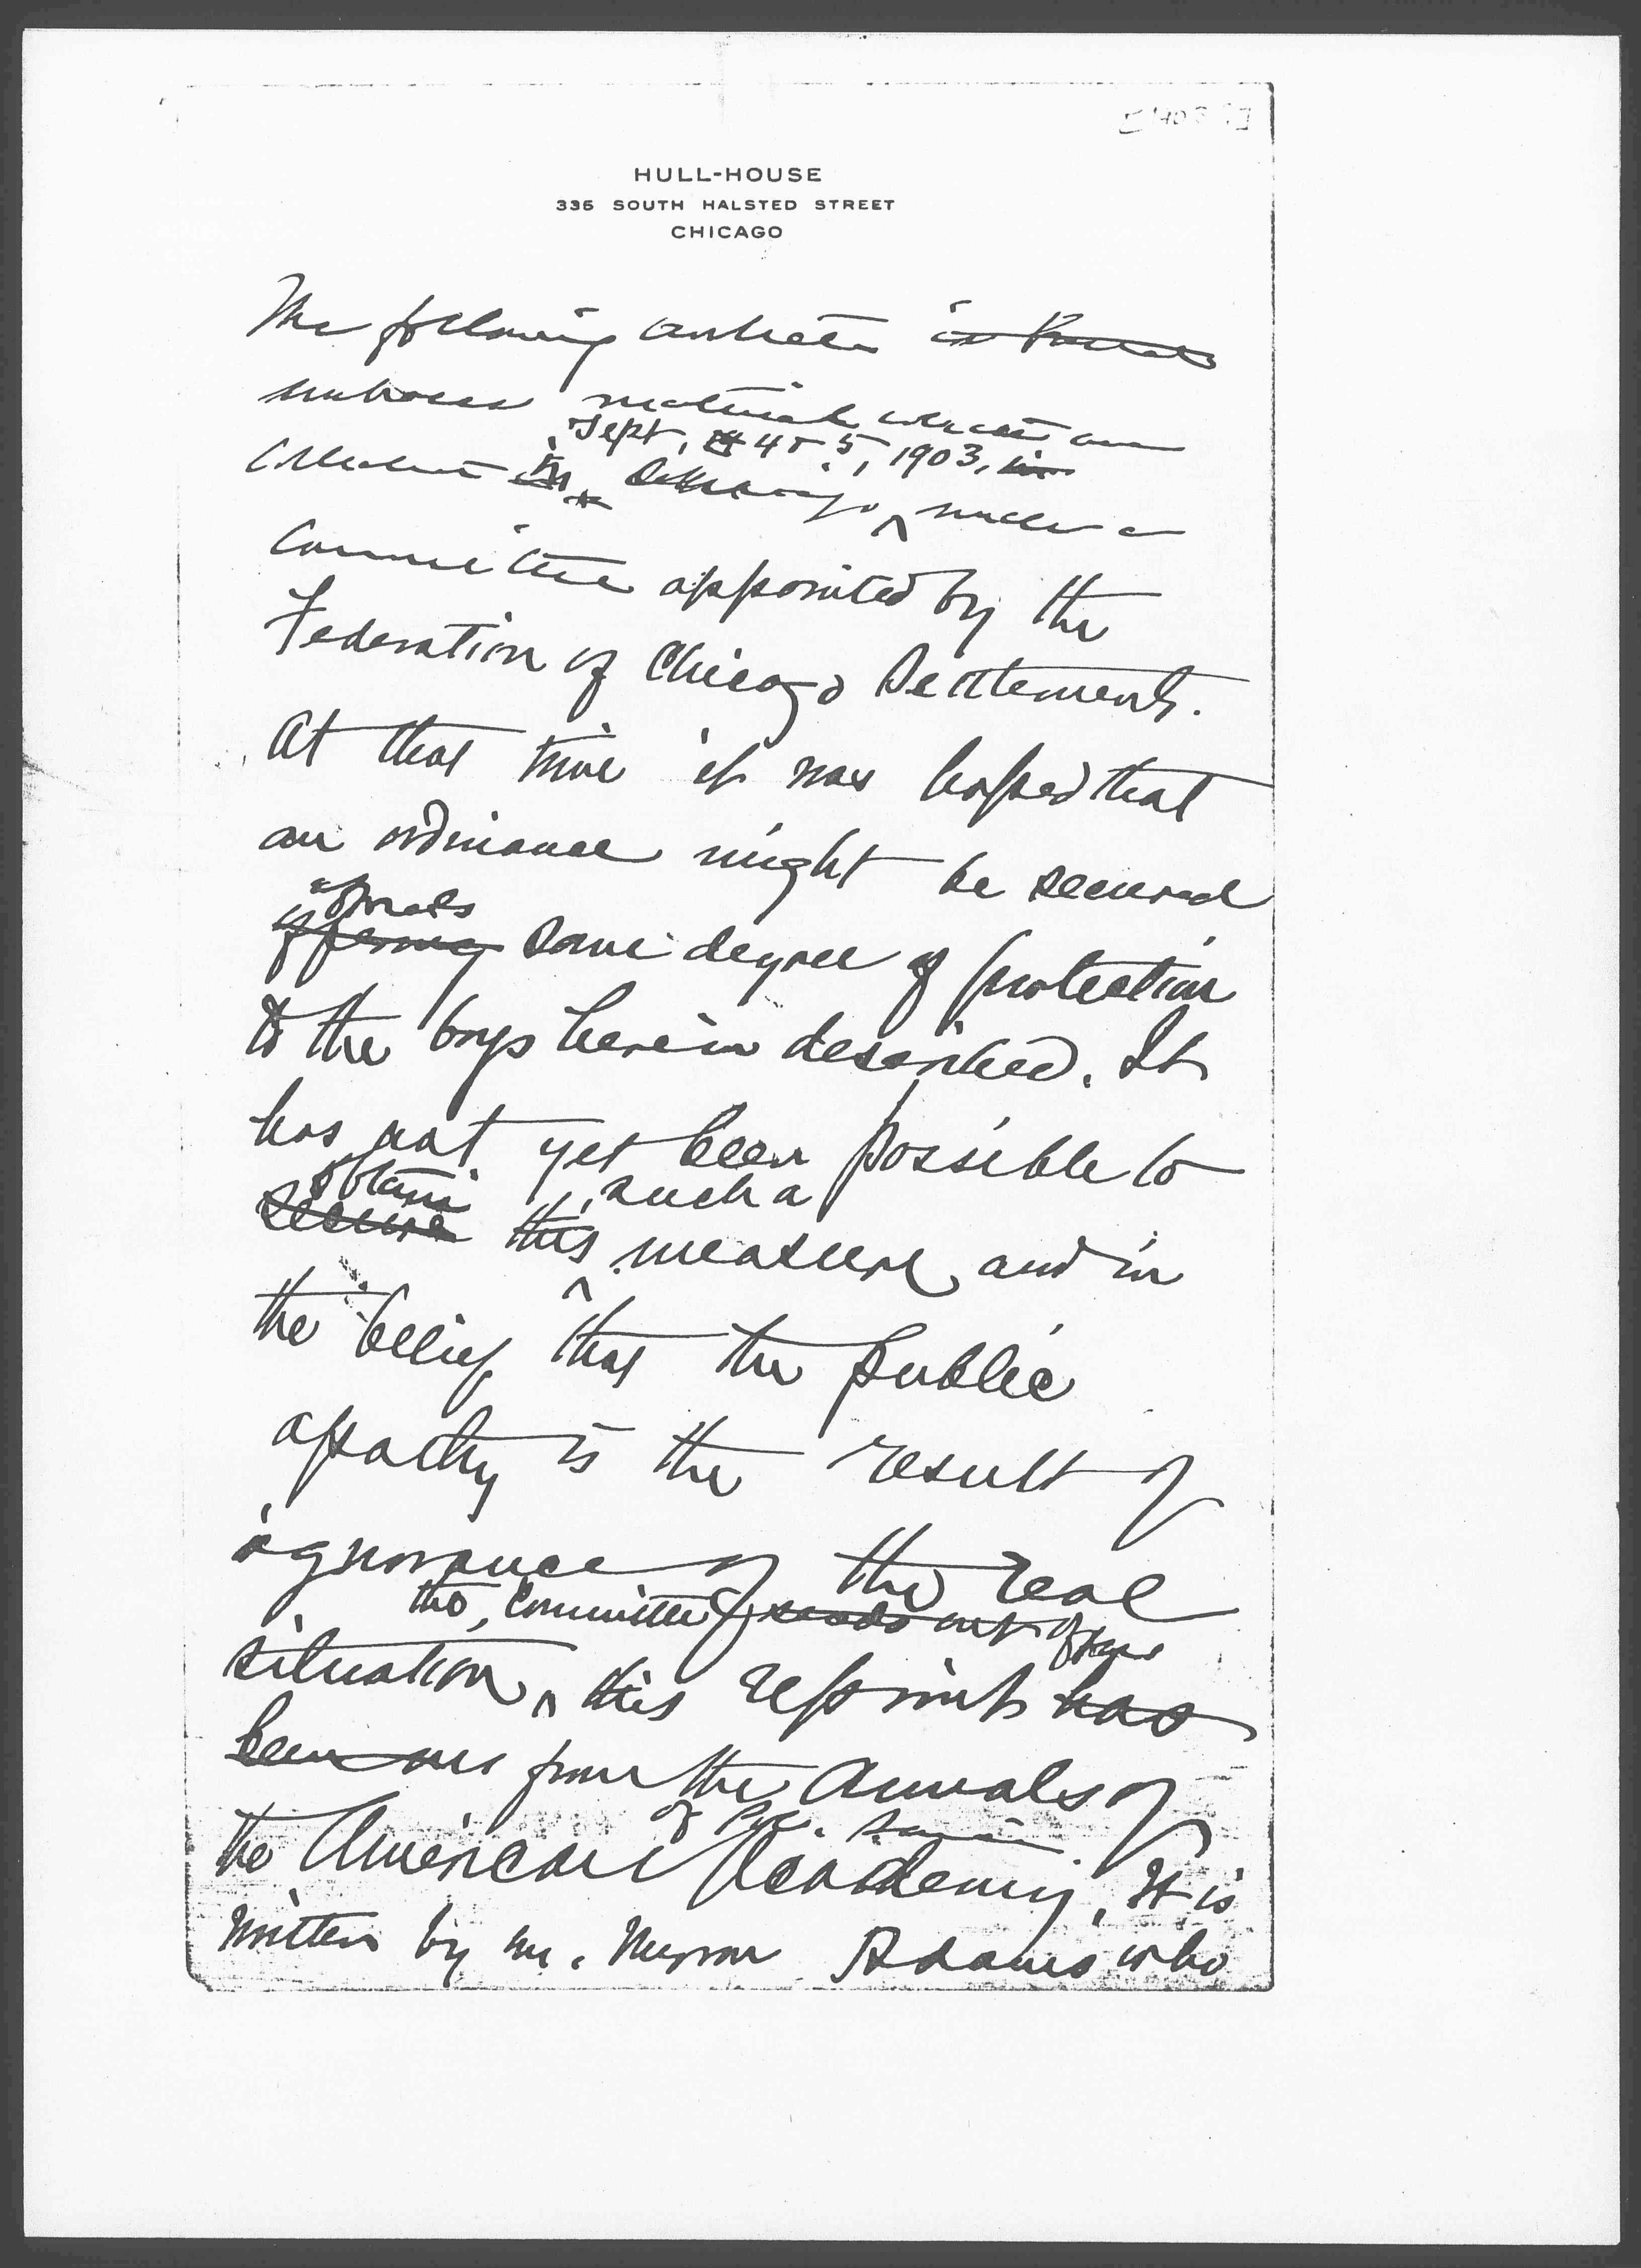 HULL-HOUSE
335 SOUTH HALSTED STREET
CHICAGO
The following article is
embraces material which was
Sept, 4 & 5, 1903, in
collected in Chicago under a
Committee appointed by the
Federation of Chicago Settlements.
At that time it was hoped that
an ordinance might be secured
affords
offering some degree of protection
to the boys herein described. It
has not yet been possible to
obtain such a
secure this measure and in
the belief that the public
apathy is the result of
ignorance of the real
the Committee sends out
situation, this reprint has
been from the Annals of
of Pol.
the American Academy, It is
written by Mr. Myron Adams who